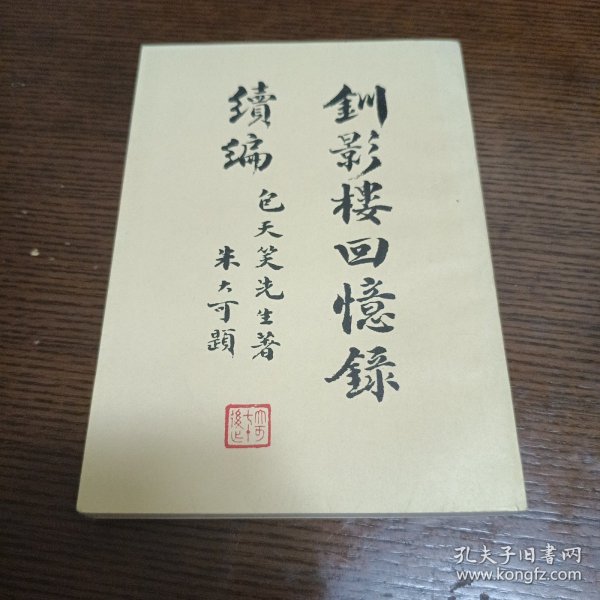 釧影樓回憶錄
續編
包天笑先生著
朱大可題
大可
七十
後作
孔夫子旧书网
www.kongfz.com